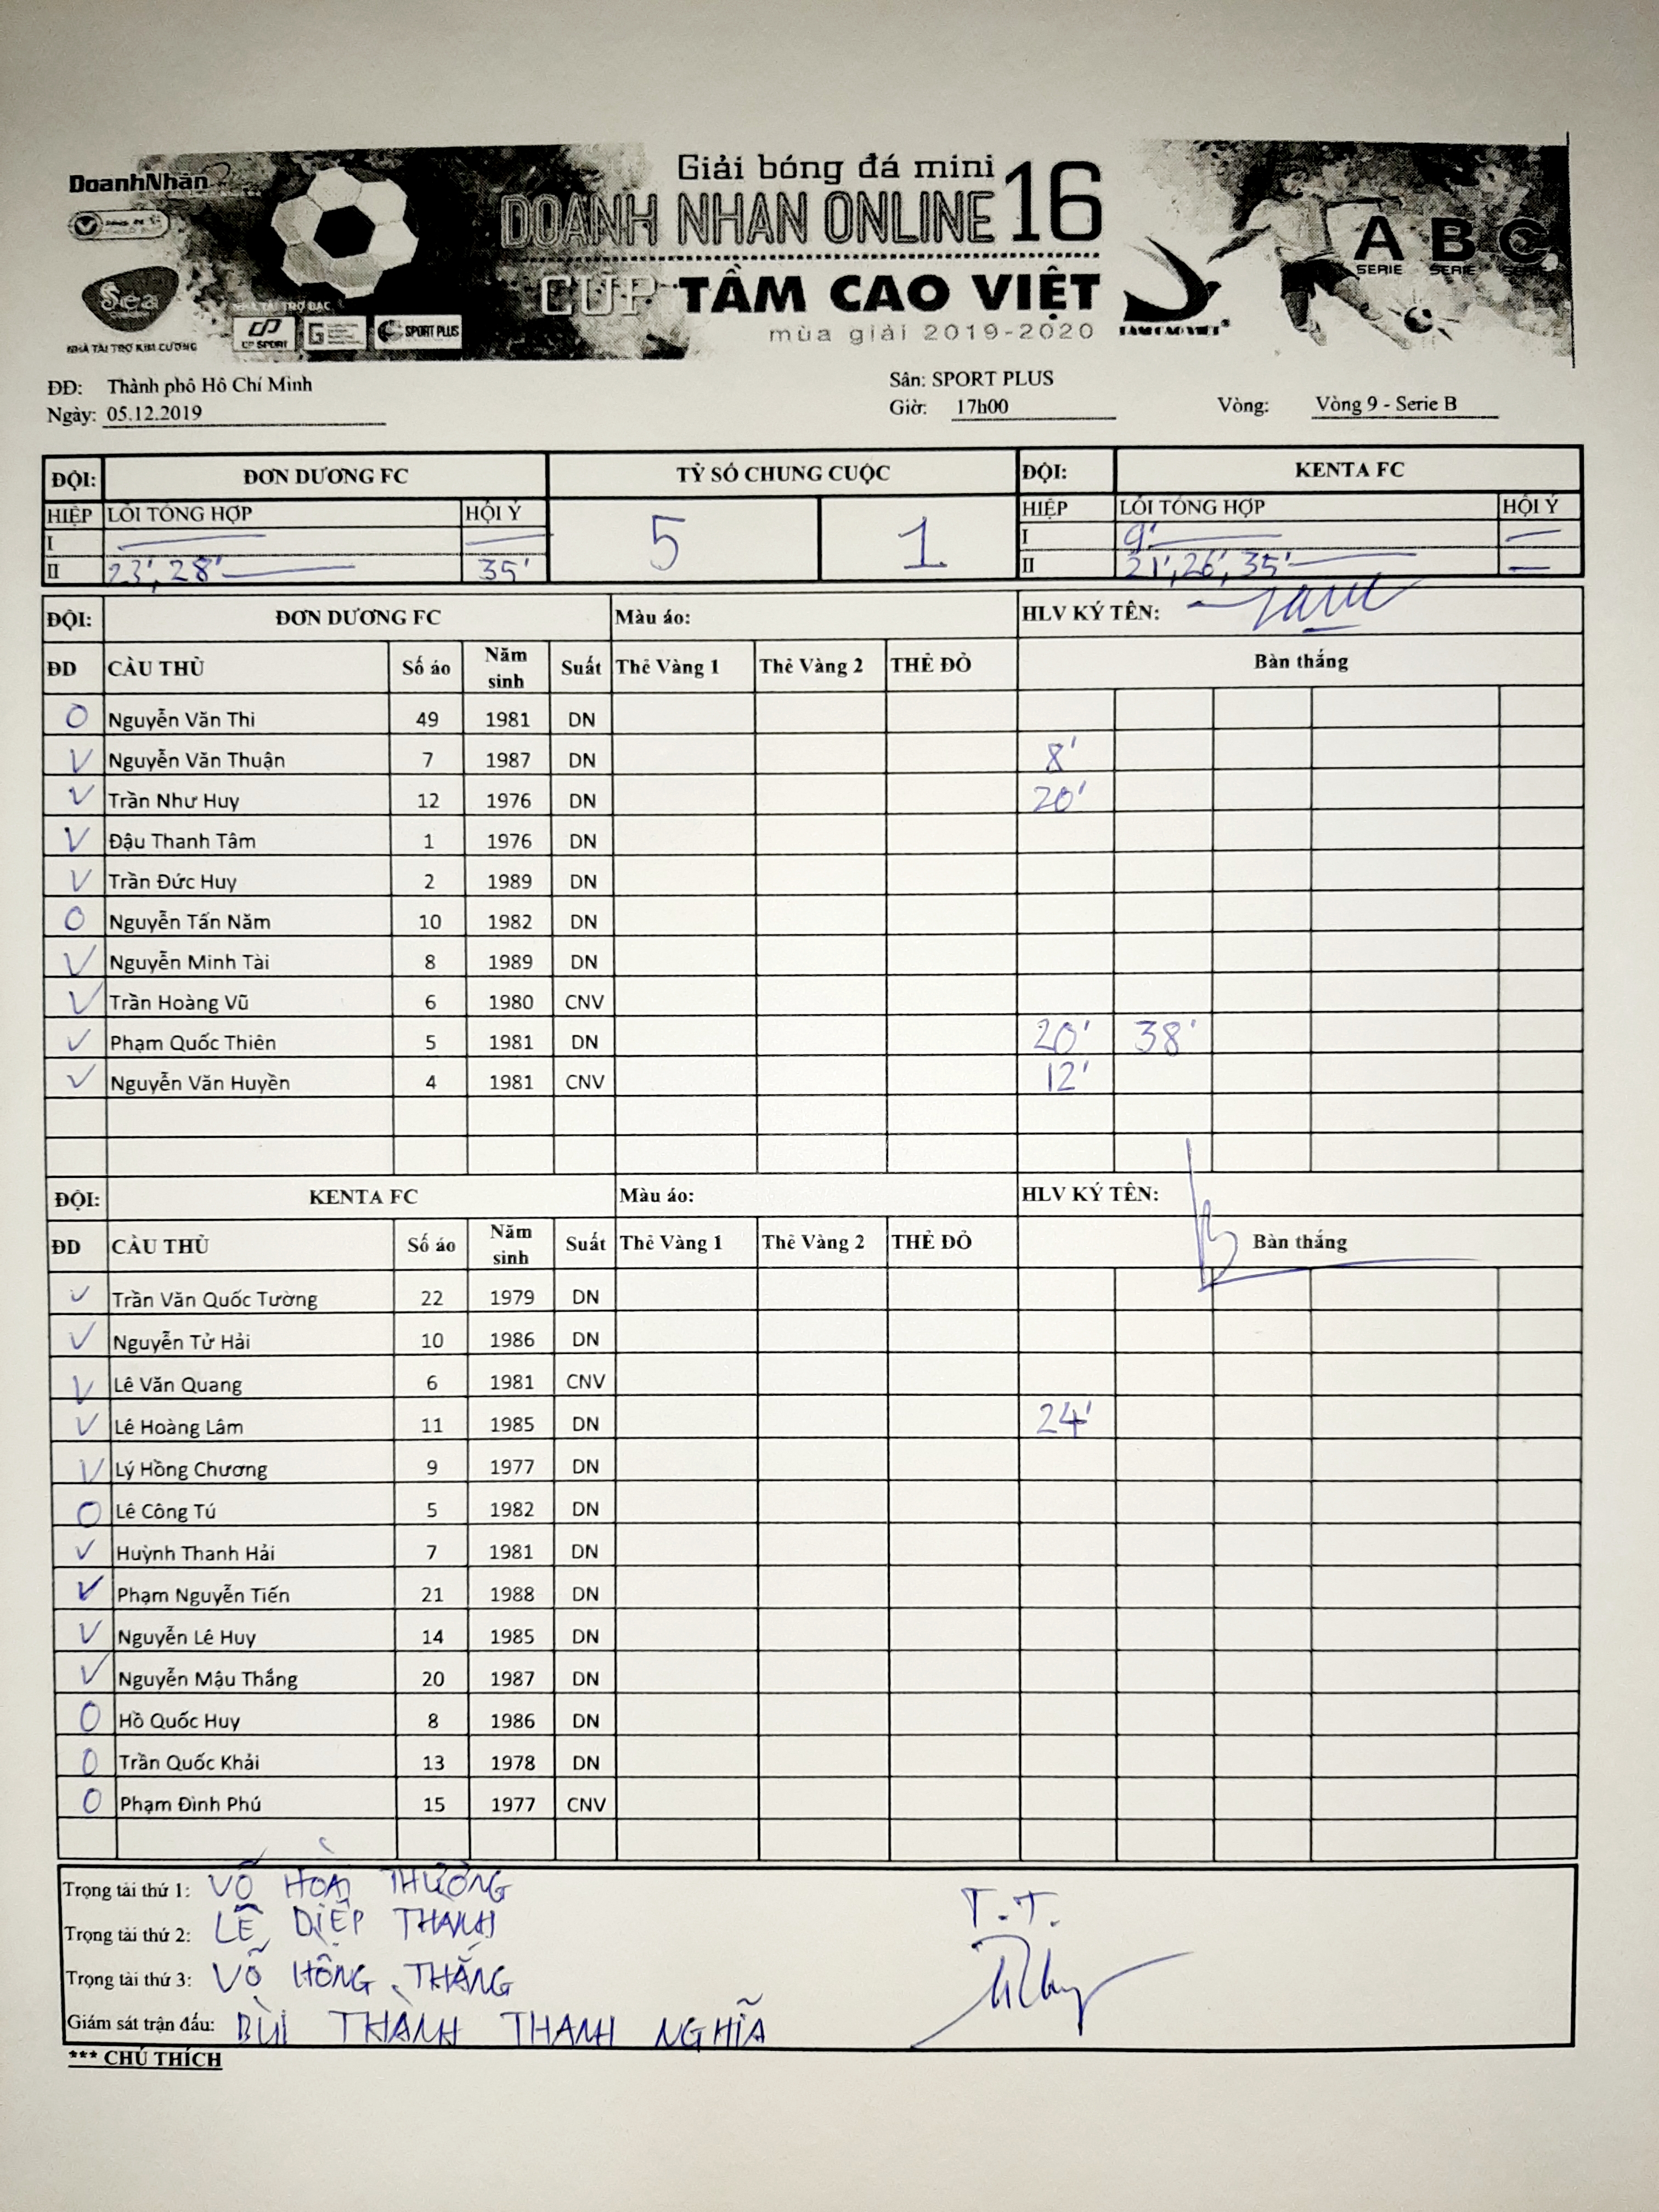 DoanhNhân
Giải bóng đá mini
DOANH NHAN ONLINE 16
CUP TẦM CAO VIỆT
mùa giải 2019-2020
A B C
SERIE SERIE SERIE
Sea
NHÀ TÀI TRỢ KIM CƯƠNG
NHÀ TÀI TRỢ BẠC
CP SPORT
SPORT PLUS
TAM CAO VIET
ĐĐ: Thành phố Hồ Chí Minh Sân: SPORT PLUS
Ngày: 05.12.2019 Giờ: 17h00 Vòng: Vòng 9 - Serie B
ĐỘI: ĐƠN DƯƠNG FC TỶ SỐ CHUNG CUỘC ĐỘI: KENTA FC
HIỆP LỖI TỔNG HỢP HỘI Ý 5 1 HIỆP LỖI TỔNG HỢP HỘI Ý
I — — I 9' —
II 23', 28' 35' II 21', 26', 35' —
ĐỘI: ĐƠN DƯƠNG FC Màu áo: HLV KÝ TÊN:
ĐD CẦU THỦ Số áo Năm sinh Suất Thẻ Vàng 1 Thẻ Vàng 2 THẺ ĐỎ Bàn thắng
O Nguyễn Văn Thi 49 1981 DN
V Nguyễn Văn Thuận 7 1987 DN 8'
V Trần Như Huy 12 1976 DN 20'
V Đậu Thanh Tâm 1 1976 DN
V Trần Đức Huy 2 1989 DN
O Nguyễn Tấn Năm 10 1982 DN
V Nguyễn Minh Tài 8 1989 DN
V Trần Hoàng Vũ 6 1980 CNV
V Phạm Quốc Thiên 5 1981 DN 20' 38'
V Nguyễn Văn Huyền 4 1981 CNV 12'
ĐỘI: KENTA FC Màu áo: HLV KÝ TÊN:
ĐD CẦU THỦ Số áo Năm sinh Suất Thẻ Vàng 1 Thẻ Vàng 2 THẺ ĐỎ Bàn thắng
V Trần Văn Quốc Tường 22 1979 DN
V Nguyễn Tử Hải 10 1986 DN
V Lê Văn Quang 6 1981 CNV
V Lê Hoàng Lâm 11 1985 DN 24'
V Lý Hồng Chương 9 1977 DN
O Lê Công Tú 5 1982 DN
V Huỳnh Thanh Hải 7 1981 DN
V Phạm Nguyễn Tiến 21 1988 DN
V Nguyễn Lê Huy 14 1985 DN
V Nguyễn Mậu Thắng 20 1987 DN
O Hồ Quốc Huy 8 1986 DN
O Trần Quốc Khải 13 1978 DN
O Phạm Đình Phú 15 1977 CNV
Trọng tài thứ 1: VÕ HOÀI THƯỜNG
Trọng tài thứ 2: LÊ DIỆP THANH
Trọng tài thứ 3: VÕ HỒNG THẮNG
Giám sát trận đấu: BÙI THÀNH THANH NGHĨA
T.T.
*** CHÚ THÍCH